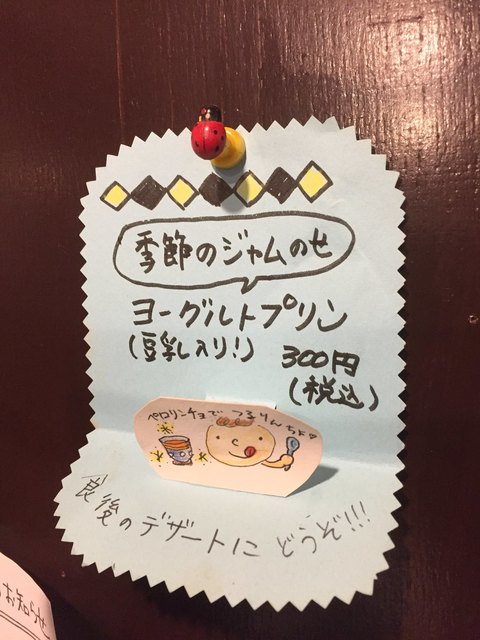 季節のジャムのせ
ヨーグルトプリン
(豆乳入り!)
300円
(税込)
ペロリンチョで つるりんちょ
食後のデザートに どうぞ!!!
お知らせ